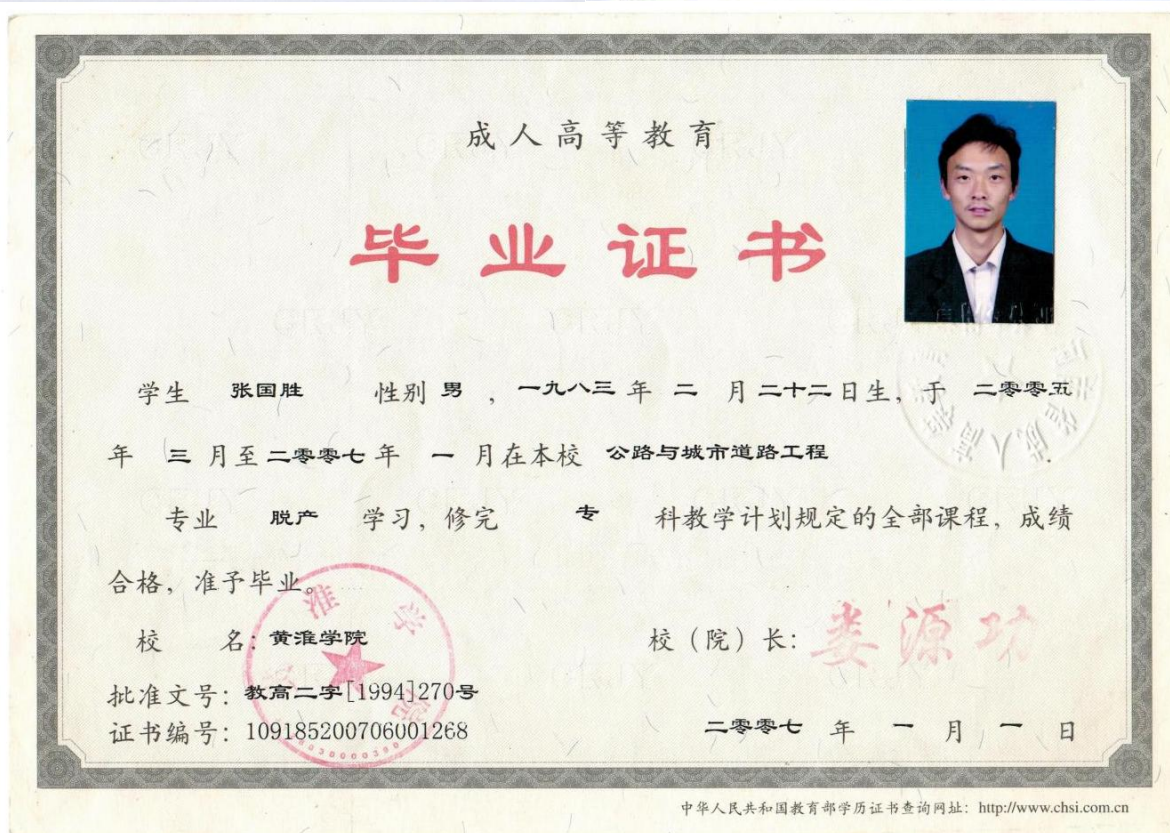 成人高等教育
毕业证书
学生 张国胜 性别 男 ，一九八三 年 二 月 二十二 日生，于 二零零五
年 三 月至 二零零七 年 一 月在本校 公路与城市道路工程
专业 脱产 学习，修完 专 科教学计划规定的全部课程，成绩
合格，准予毕业。
校 名：黄淮学院 校（院）长：娄源功
批准文号：教高二字[1994]270号
证书编号：109185200706001268 二零零七 年 一 月 一 日
中华人民共和国教育部学历证书查询网址：http://www.chsi.com.cn